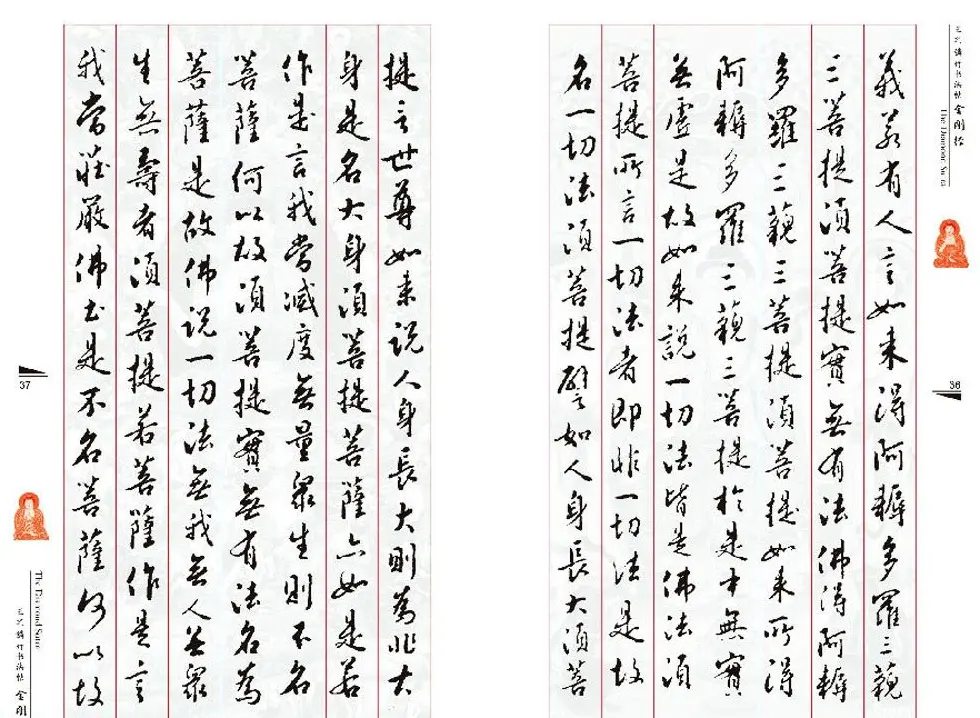 金剛经
The Diamond Sutra
36
義若有人言如来得阿耨多羅三藐
三菩提須菩提實無有法佛得阿耨
多羅三藐三菩提須菩提如来所得
阿耨多羅三藐三菩提於是中無實
無虛是故如来說一切法皆是佛法須
菩提所言一切法者即非一切法是故
名一切法須菩提譬如人身長大須菩
提言世尊如来说人身長大則為非大
身是名大身須菩提菩薩亦如是若
作是言我當滅度無量眾生則不名
菩薩何以故須菩提實無有法名為
菩薩是故佛说一切法無我無人無眾
生無壽者須菩提若菩薩作是言
我當莊嚴佛土是不名菩薩何以故
37
The Diamond Sutra
金剛